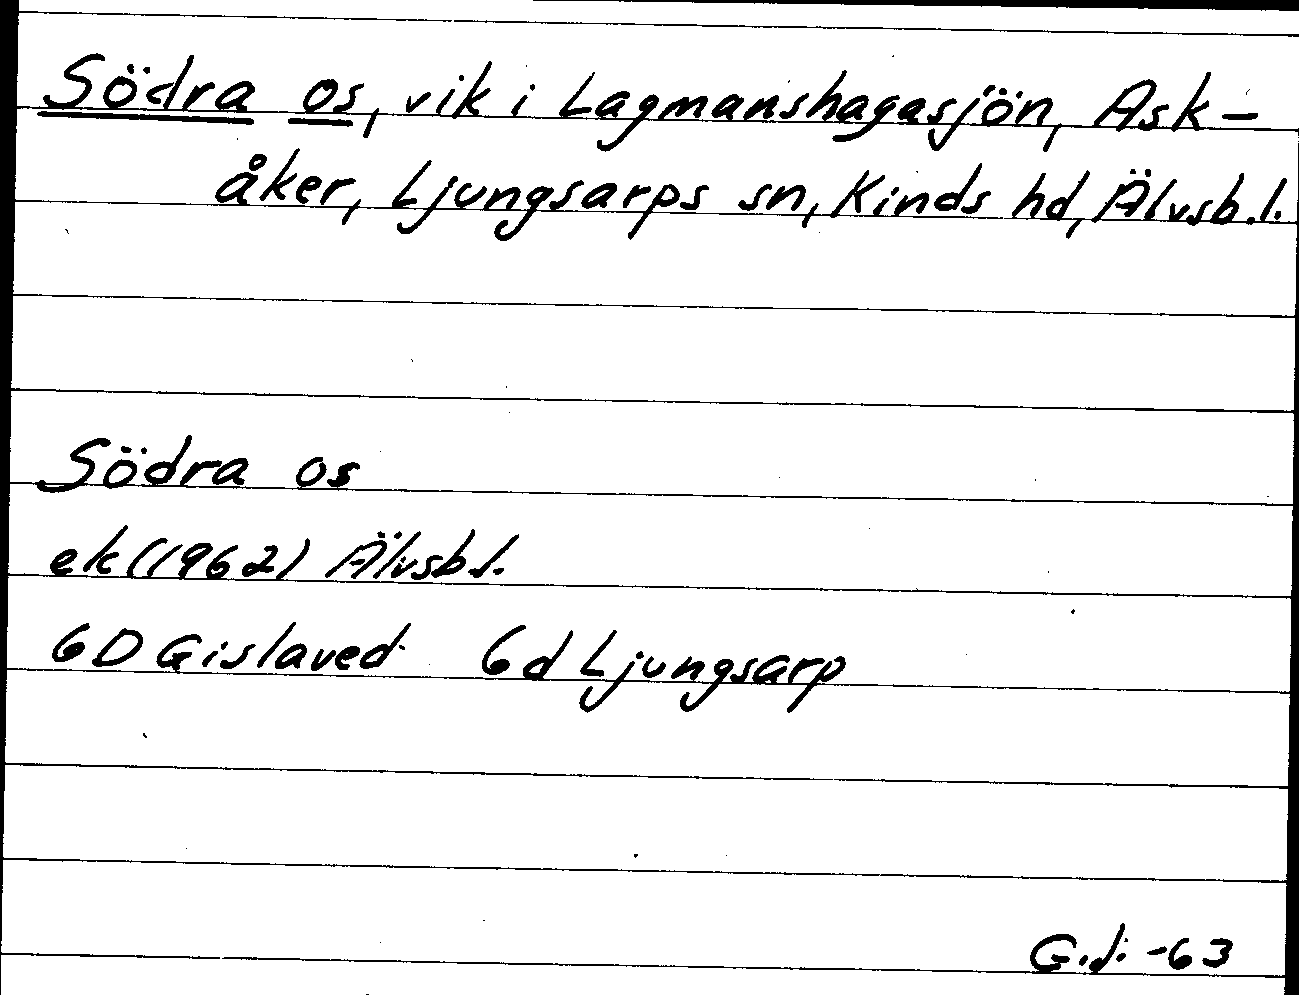 Södra os, vik i Lagmanshagasjön, Ask-
åker, Ljungsarps sn, Kinds hd, Älvsb.l.
Södra os
ek (1962) Älvsb.l.
6D Gislaved 6d Ljungsarp
G.J. -63